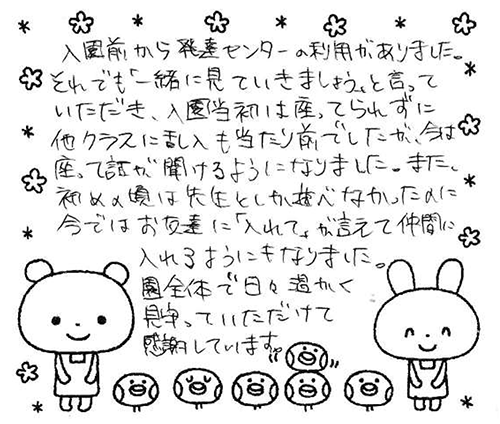 入園前から発達センターの利用がありました。
それでも「一緒に見ていきましょう。」と言って
いただき、入園当初は座ってられずに
他クラスに乱入も当たり前でしたが、今は
座って話が聞けるようになりました。また、
初めの頃は先生としか遊べなかったのに
今ではお友達に「入れて」が言えて仲間に
入れるようにもなりました。
園全体で日々温かく
見守っていただけて
感謝しています。